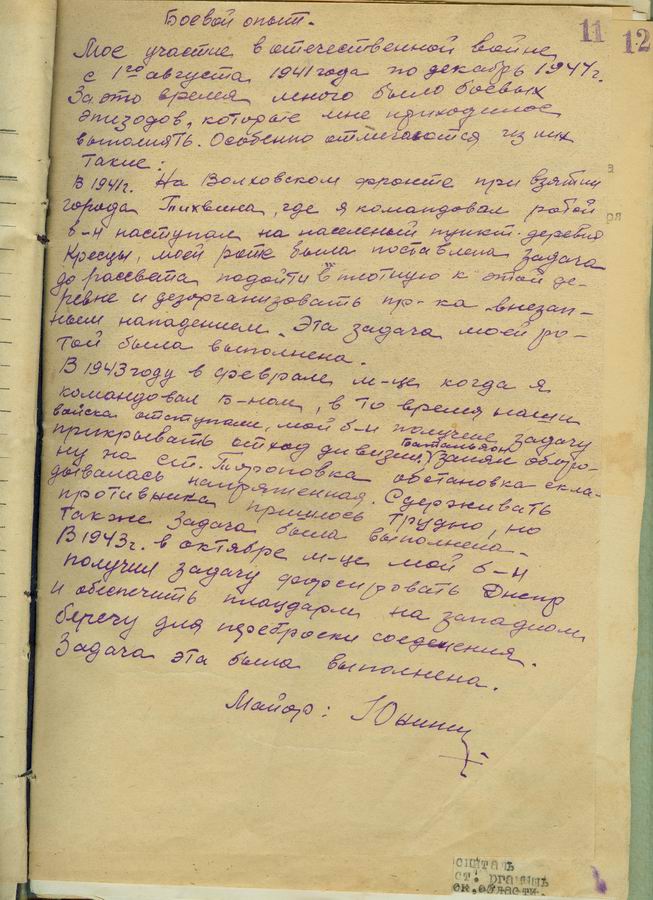 Боевой опыт.
11
12
Мое участие в отечественной войне
с 1го августа 1941 года по декабрь 1944 г.
За это время много было боевых
эпизодов, которые мне приходилось
выполнять. Особенно отличаются из них
такие:
В 1941 г. На Волховском фронте при взятии
города Тихвина, где я командовал ротой
б-н наступал на населеный пункт. деревня
Кресцы, моей роте была поставлена задача
до рассвета подойти вплотную к этой де-
ревне и дезорганизовать пр-ка внезап-
ным нападением. Эта задача моей ро-
той была выполнена.
В 1943 году в феврале м-це когда я
командовал б-ном, в то время наши
войска отступали, мой б-н получил задачу
прикрывать отход дивизии, батальон занял оборо-
ну на ст. обстановка скла-
дывалась напряженная. Сдерживать
противника пришлось трудно, но
также задача была выполнена.
В 1943 г. в октябре м-це мой б-н
получил задачу форсировать Днепр
и обеспечить плацдарм на западном
берегу для переброски соеденения.
Задача эта была выполнена.
Майор: